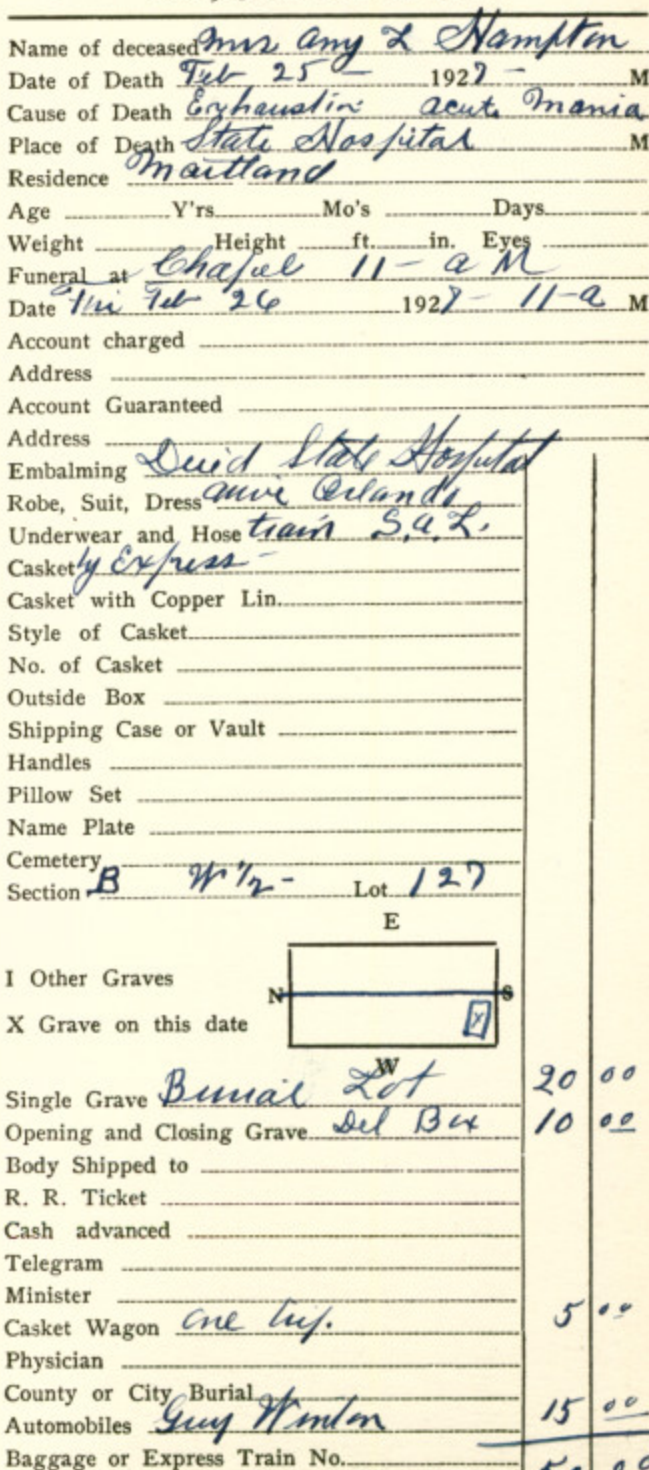 Name of deceased Mrs Amy L Hampton
Date of Death Feb 25 - 1927 - M
Cause of Death Exhaustion acute Mania
Place of Death State Hospital M
Residence Maitland
Age Y'rs Mo's Days
Weight Height ft. in. Eyes
Funeral at Chapel 11 - a M
Date Feb 26 1927 - 11 - a M
Account charged
Address
Account Guaranteed
Address
Embalming State Hospital
Robe, Suit, Dress Orlando
Underwear and Hose train S.a.L.
Casket by Express -
Casket with Copper Lin.
Style of Casket
No. of Casket
Outside Box
Shipping Case or Vault
Handles
Pillow Set
Name Plate
Cemetery
Section B W 1/2 - Lot 127
E
I Other Graves
N S
X Grave on this date X
W
Single Grave Burial Lot 20 00
Opening and Closing Grave Del Box 10 00
Body Shipped to
R. R. Ticket
Cash advanced
Telegram
Minister
Casket Wagon one trip. 5 00
Physician
County or City Burial
Automobiles Guy 15 00
Baggage or Express Train No. 50 00